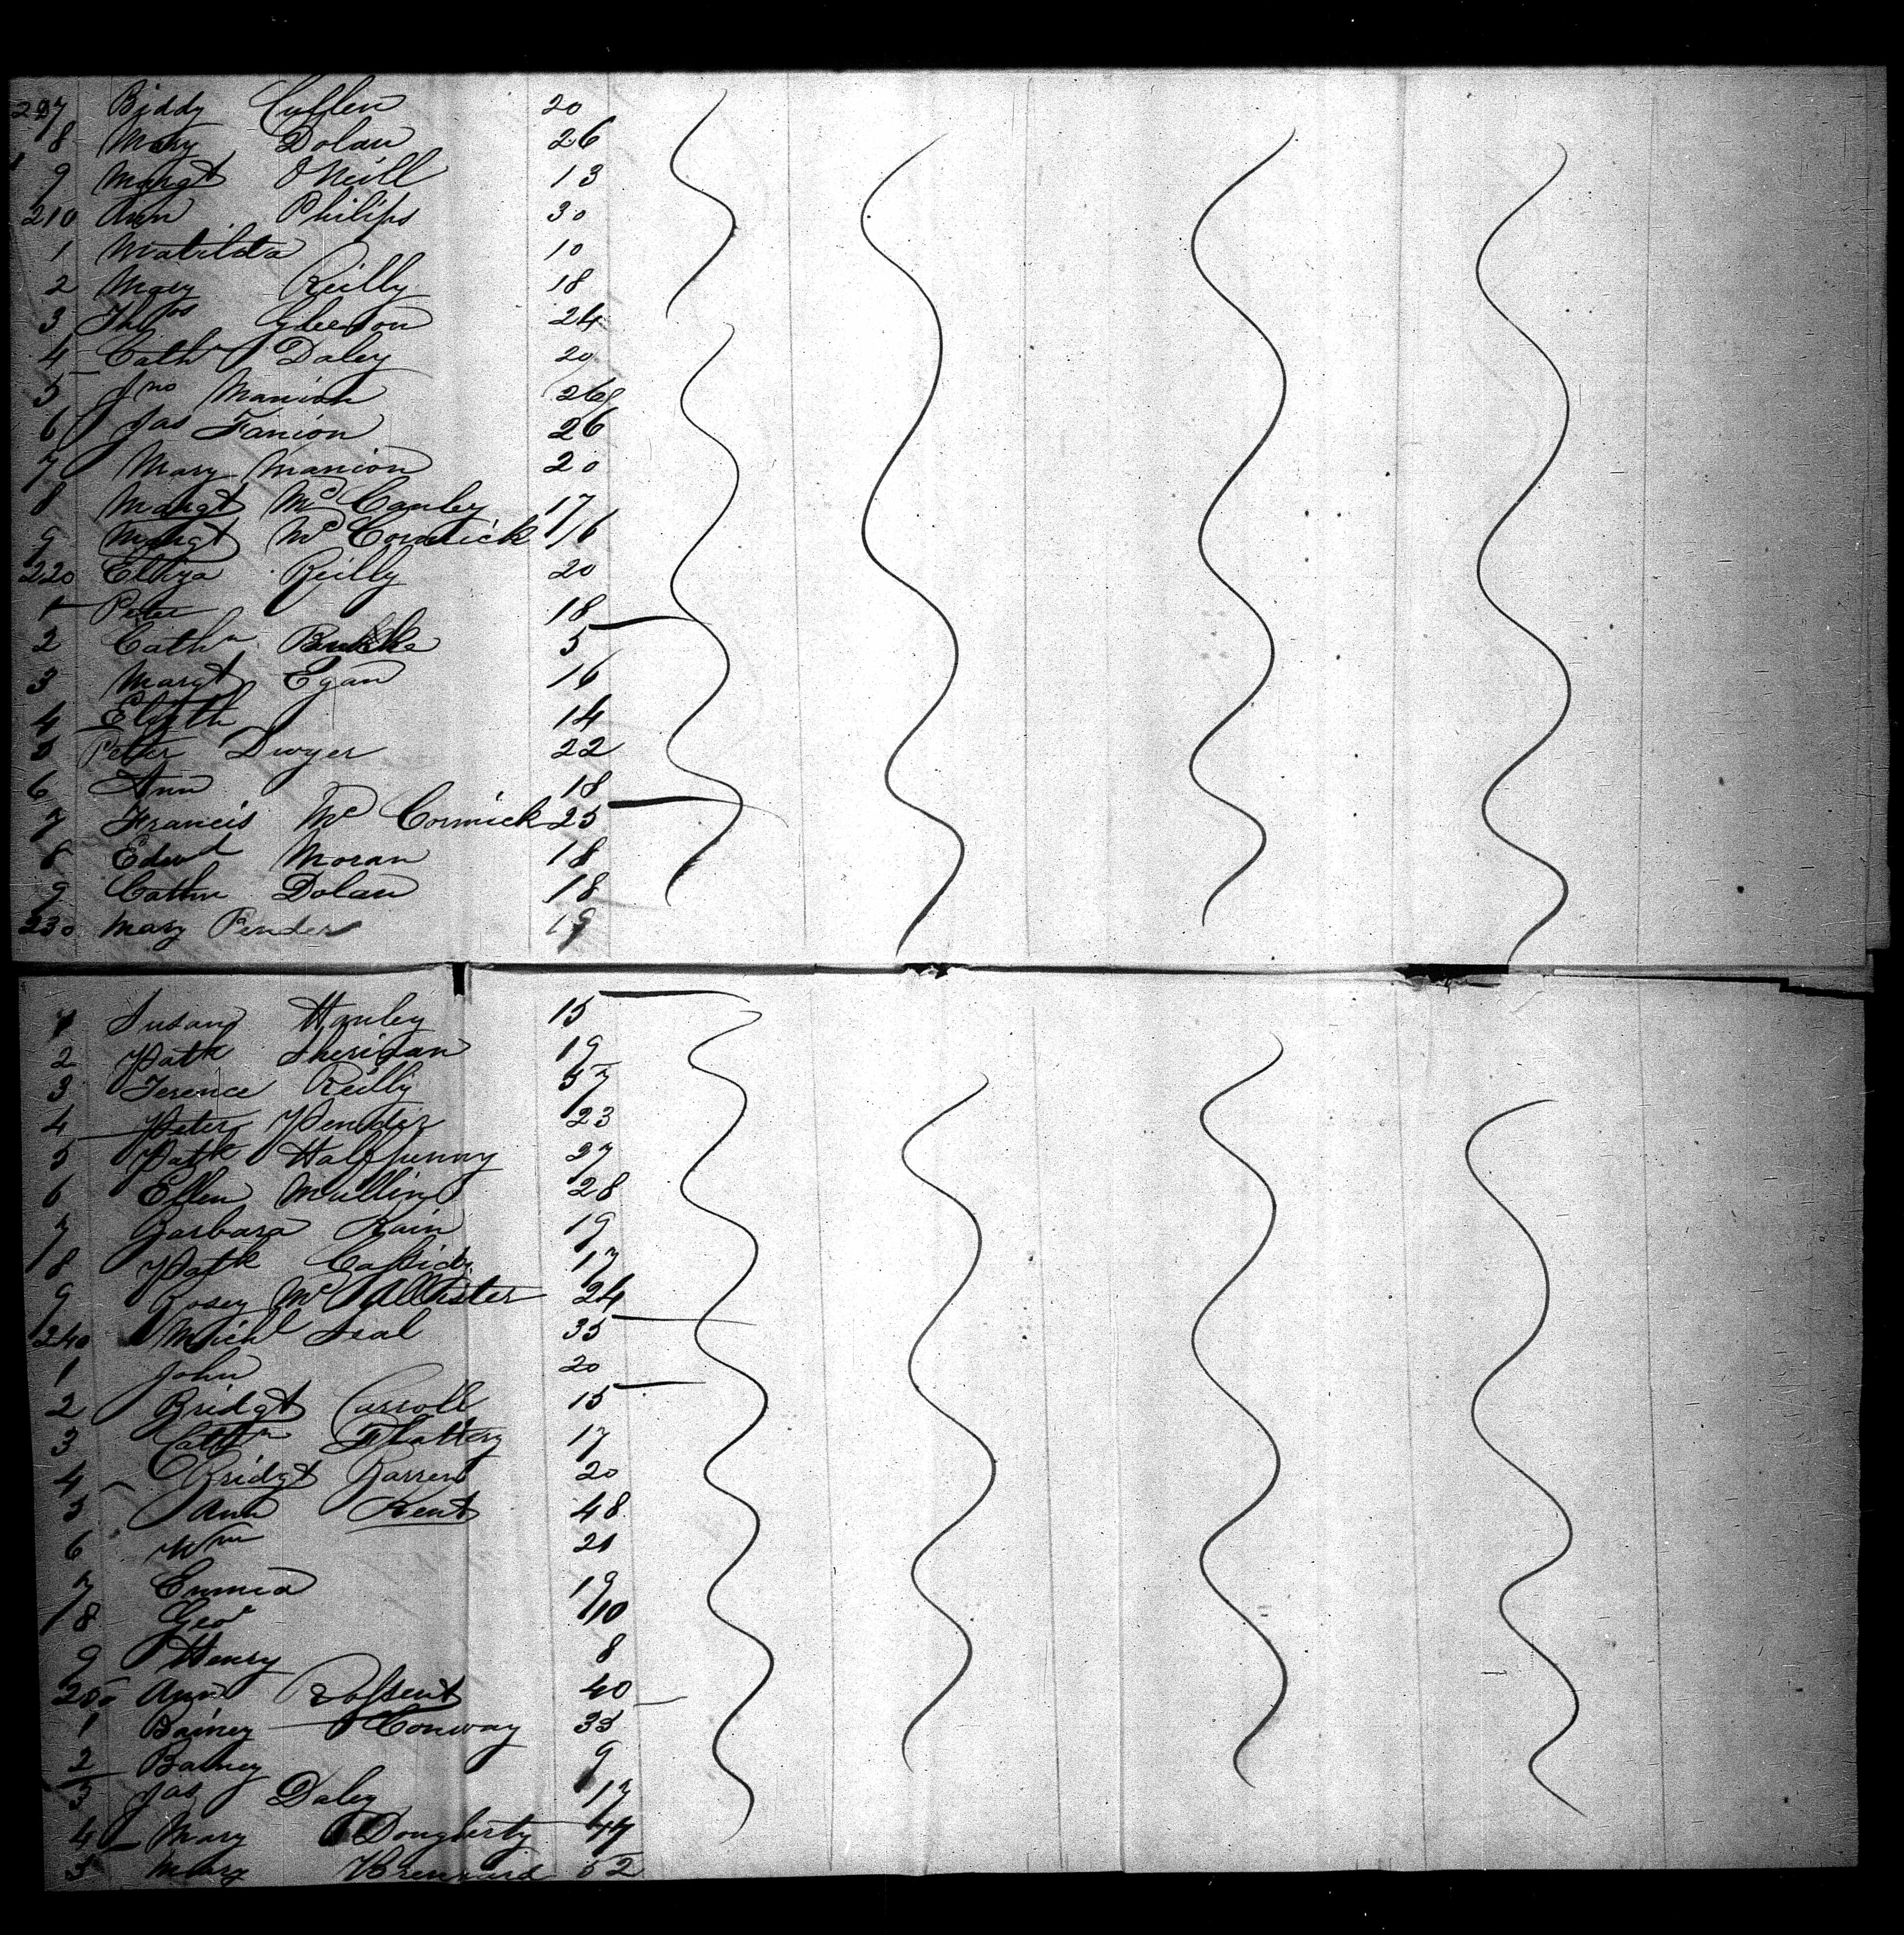 207 Biddy Cullen 20
8 Mary Dolan 26
9 Margt O'Neill 13
210 Ann Philips 30
1 Matilda 10
2 Mary Reilly 18
3 Thos Gleeson 24
4 Cathn Daley 20
5 Jno Manion 26
6 Jas Fanion 26
7 Mary Manion 20
8 Margt Mc Canley 17
9 Margt Mc Cormick 16
220 Elliza Reilly 20
1 Peter 18
2 Cathn 5
3 Margt Egan 16
4 Elizth 14
5 Peter Dwyer 22
6 Ann 18
7 Francis Mc Cormick 25
8 Edwd Moran 18
9 Cathn Dolan 18
230 Mary Pender 19
1 Susan Hanley 15
2 Patk Sheridan 19
3 Terence Reilly 57
4 Peter Pender 23
5 Patk Halfpenny 27
6 Ellen Mullin 28
7 Barbara Kain 19
8 Patk Cassidy 17
9 Rosey Mc Allister 24
240 Michl 35
1 John 20
2 Bridgt Carroll 15
3 Cathn Flattery 17
4 Bridgt Barren 20
5 Ann Kent 48
6 Wm 21
7 Emma 19
8 Geo 10
9 Henry 8
250 Ann 40
1 Barney Conway 35
2 Barney 9
3 Jas Daley 17
4 Mary Dougherty
5 Mary 52